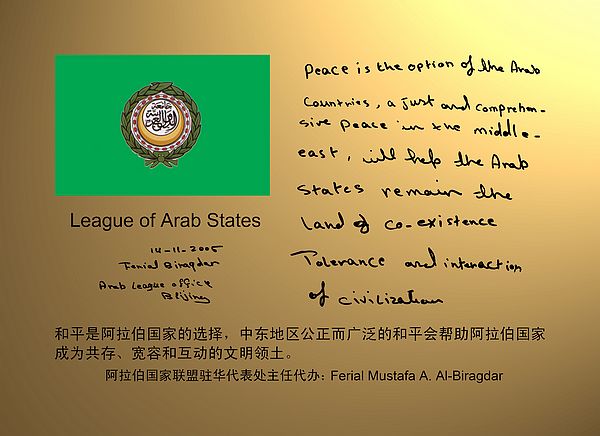 League of Arab States
14-11-2005
Ferial Biragdar
Arab League office
Beijing
Peace is the option of the Arab
Countries, a just and comprehen-
sive peace in the middle-
east, will help the Arab
States remain the
land of co-existence
Tolerance and interaction
of civilization
和平是阿拉伯国家的选择，中东地区公正而广泛的和平会帮助阿拉伯国家
成为共存、宽容和互动的文明领土。
阿拉伯国家联盟驻华代表处主任代办：Ferial Mustafa A. Al-Biragdar